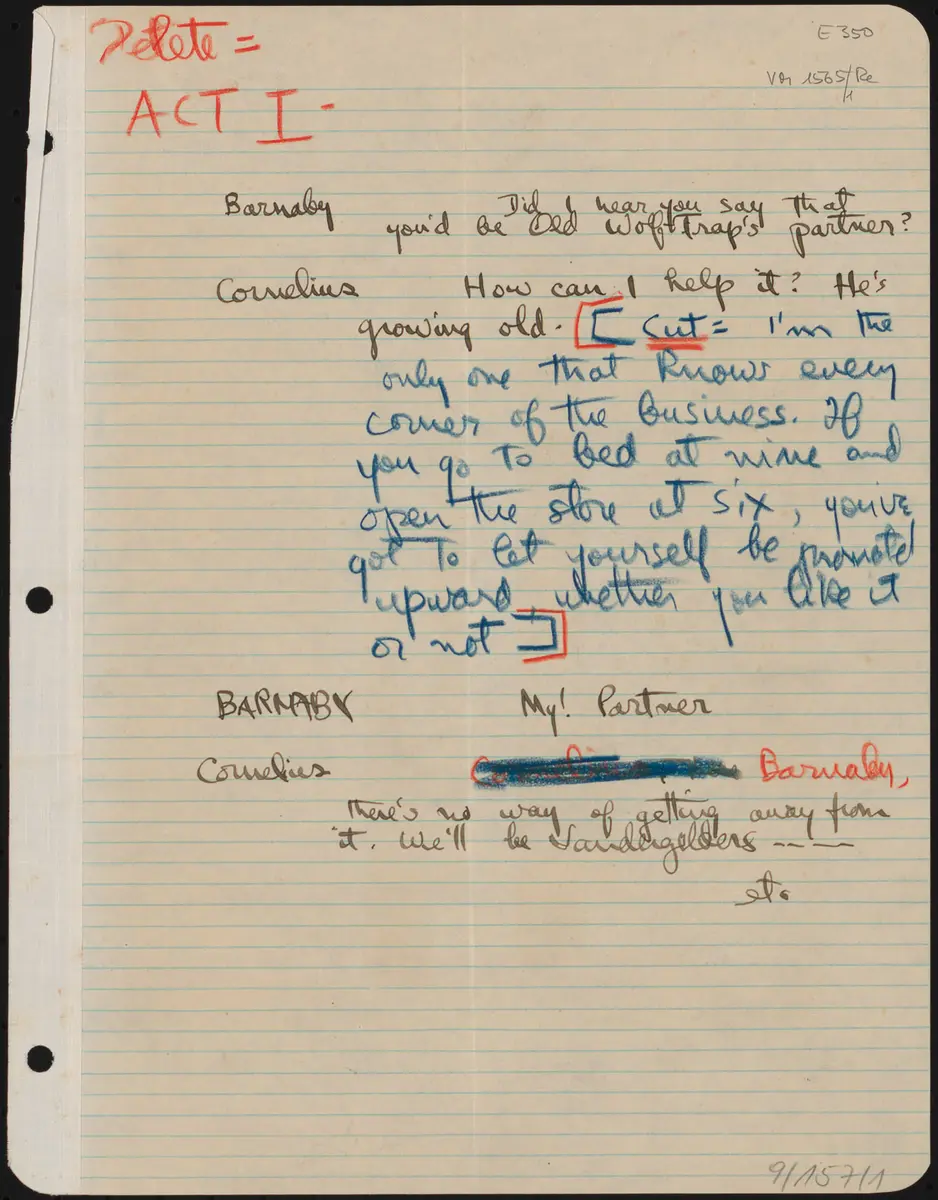 Delete =
E 350
VM 1565/Re
/1
ACT I -
Barnaby Did I hear you say that
you'd be Old Wolf-Trap's partner?
Cornelius How can I help it? He's
growing old. [ Cut = I'm the
only one that knows every
corner of the business. If
you go to bed at nine and
open the store at six, you've
got to let yourself be promoted
upward whether you like it
or not ]
BARNABY My! Partner
Cornelius Barnaby,
there's no way of getting away from
it. We'll be Vandergelders ----
etc.
9/157/1